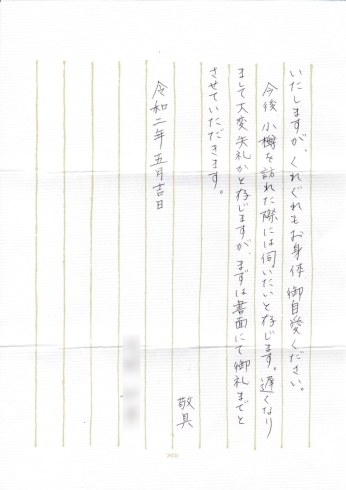 いたしますが、くれぐれもお身体御自愛ください。
今後小樽を訪れた際には伺いたいと存じます。遅くなり
まして大変失礼かと存じますが、まずは書面にて御礼までと
させていただきます。
敬具
令和二年五月吉日